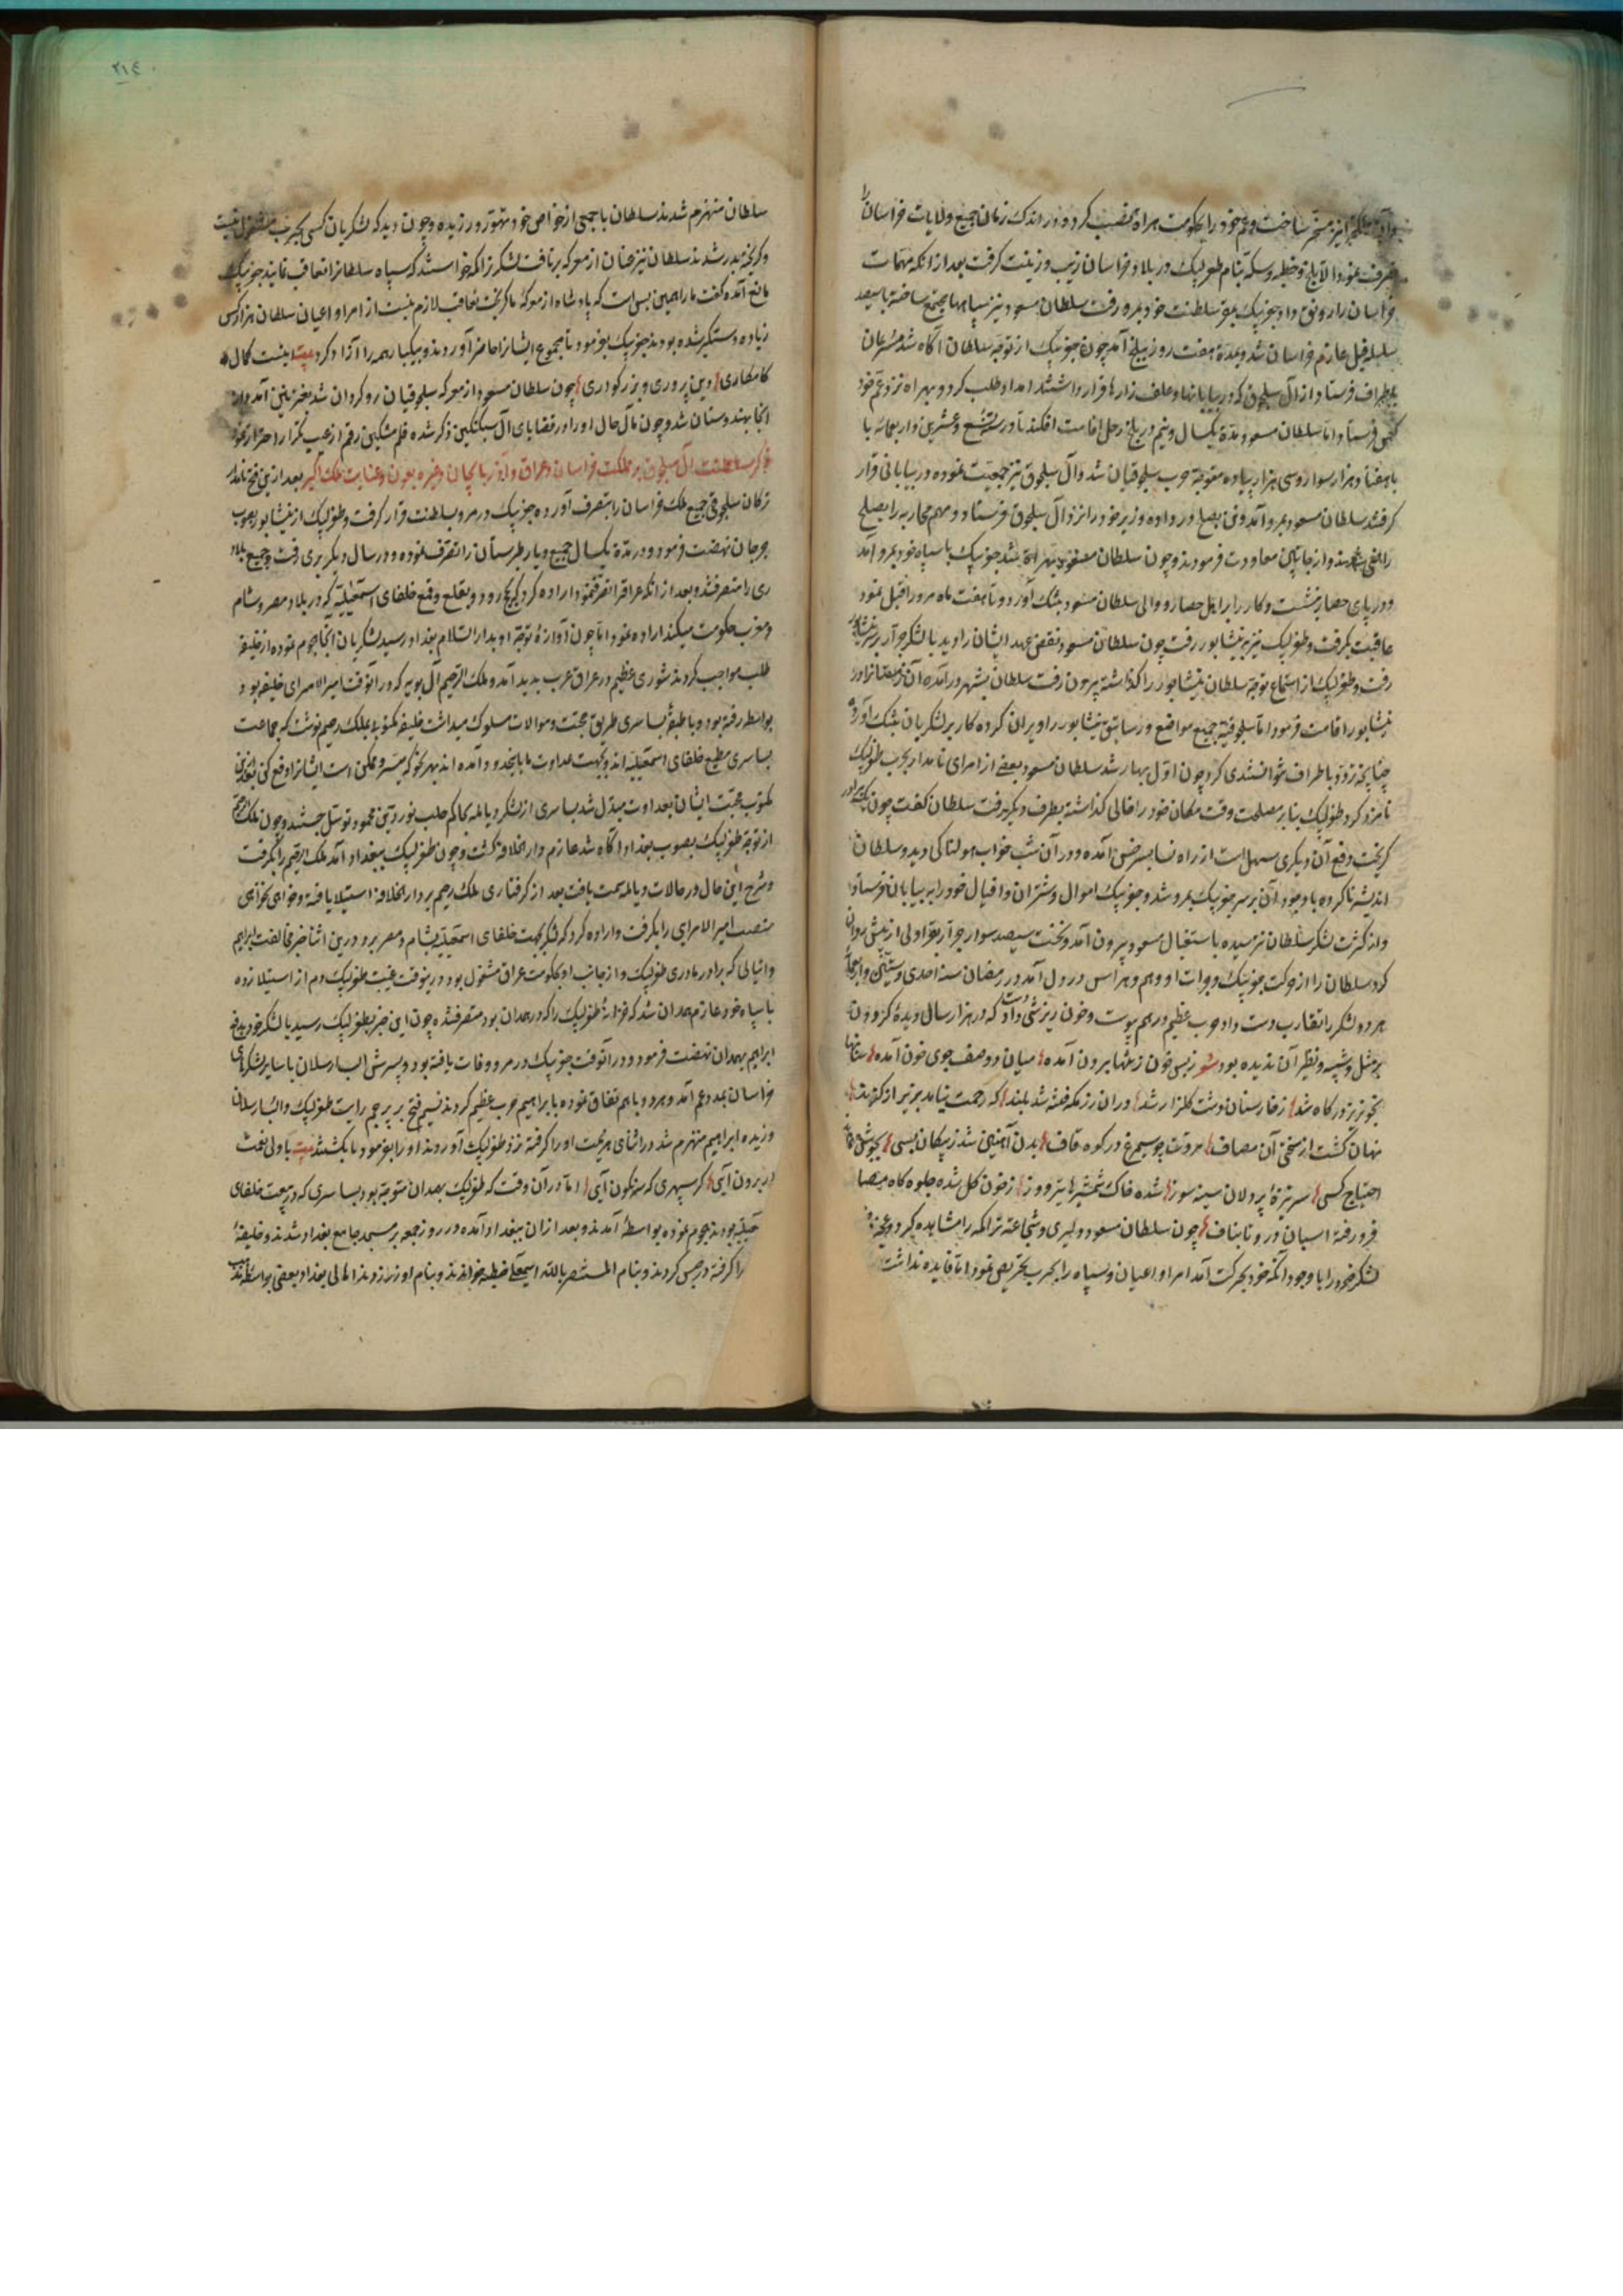 و آن ملک را نیز مسخر ساخت و عم خود را بحکومت هراة نصب کرد و در اندک زمان جمیع ولایات خراسان را
تصرف نمود الا بلخ و خطبه و سکه بنام طغرلبیک در بلاد خراسان زیب و زینت گرفت بعد از آنکه مهمات
خراسان را رونق داد جغربیک بمقر سلطنت خود بمرو رفت سلطان مسعود نیز سپاهها مجتمع ساخته با سیصد
سلسله فیل عازم خراسان شد و بمدة هفت روز ببلخ آمد چون جغربیک از توجه سلطان آگاه شد مسرعان
باطراف فرستاد و از آل سلجوق که در بیابانها و علف زارها قرار داشتند امداد طلب کرد و بهراه نزد عم خود
کس فرستاد اما سلطان مسعود مدة یکسال و نیم در بلخ رحل اقامت افکند تا در سنه تسع و عشرین و اربعمائه با
با هفتاد هزار سوار و سی هزار پیاده متوجه حرب سلجوقیان شد و آل سلجوق نیز جمعیت نموده در بیابانی قرار
گرفتند سلطان مسعود بمرو آمد و تن بصلح در داده وزیر خود را نزد آل سلجوق فرستاد و مهم محاربه را بصلح
راضی شدند و از جانبین معاودت فرمودند و چون سلطان مسعود بهراة شد جغربیک با سپاه خود بمرو آمد
و در پای حصار نشست و کار را بر اهل حصار و والی سلطان مسعود بتنک آورد و تا هفت ماه مرو را قبل نمود
عاقبت بگرفت و طغرلبیک نیز به نیشابور رفت چون سلطان مسعود نقض عهد ایشان را دید با لشکر جرار بر سر نیشابور
رفت و طغرلبیک از استماع توجه سلطان نیشابور را گذاشته بیرون رفت سلطان بشهر درآمده آن زمستانرا در
نیشابور اقامت فرمود اما سلجوقیه جمیع مواضع و رساتیق نیشابور را ویران کرده کار بر لشکریان بتنک آورد
چنانچه تردد باطراف نتوانستندی کرد چون اول بهار شد سلطان مسعود بعضی از امرای نامدار بحرب طغرلبیک
نامزد کرد طغرلبیک بنابر مصلحت وقت مکان خود را خالی گذاشته بطرف دیگر رفت سلطان گفت چون یک برادر
گریخت دفع آن دیگری سهل است از راه نسا بسرخس آمده و در آن شب خواب هولناکی دید و سلطان
اندیشه ناکرده با وجود آن بر سر جغربیک بمرو شد و جغربیک اموال و شتران و اقیال خود را به بیابان فرستاد
و از کثرت لشکر سلطان نترسیده باستقبال مسعود بیرون آمد و نخست سیصد سوار جرار بقراولی از پیش روان
کرد سلطان را از حرکت جغربیک و جرات او وهم و هراس در دل آمد در رمضان سنه احدی و ستین و اربعمائه
هر دو لشکر را تقارب دست داد و حرب عظیم در هم پیوست و خون ریزشی دست داد که در هزار سال دیده گردون
بر مثل و شبیه و نظیر آن ندیده بود شعر ز بس خون ز تنها برون آمده میان دو صف جوی خون آمده سنانها
بخونریز در کاه شد ز خارستان دشت گلزار شد در ان رزمگه فتنه شد بلند که رحمت نیامد بزیر از کمند
نهان گشت از سختی آن مصاف مروت چو سیمرغ در کوه قاف بدن آهنین شد ز پیکان بسی بجوشن
احتیاج کسی سر نیزه پردلان سینه سوز شده خاک شمشیرها تیره روز ز خون گل شده جلوه گاه مصاف
فرو رفته اسبان در و تا بناف چون سلطان مسعود دلیری و شجاعت تراکمه را مشاهده کرد و
لشکر خود را با وجود آنکه خود بحرکت آمد امرا و اعیان و سپاه را بحرب تحریص نمود اما فایده نداشت
۲۱٤
سلطان منهزم شدند سلطان با جمعی از خواص خود تهور ورزیده و چون دید که لشکریان کسی بحرب مشغول نیست
و گریخته بدر شدند سلطان نیز عنان از معرکه برتافت لشکر تراکمه خواستند که سپاه سلطانرا تعاقب نمایند جغربیک
مانع آمده گفت ما را همین بس است که پادشاه از معرکه ما گریخت تعاقب لازم نیست از امرا و اعیان سلطان هزار کس
زیاده دستگیر شده بودند جغربیک بفرمود تا مجموع ایشانرا حاضر آوردند و بیکبار همه را آزاد کرد بیت اینست کمال
کامکاری دین پروری و بزرگواری چون سلطان مسعود از معرکه سلجوقیان روگردان شد بغزنین آمد و از
آنجا بهندوستان شد و چون مآل حال او را در قضایای آل سبکتکین ذکر شده قلم مشکین رقم از عیب تکرار احتراز نمود
ذکر سلطنت آل سلجوق بر مملکت خراسان و عراق و آذربایجان و غیره بعون و عنایت ملک اکبر بعد از این فتح نامدار
ترکان سلجوقی جمیع ملک خراسان را بتصرف آورده جغربیک در مرو بسلطنت قرار گرفت و طغرلبیک از نیشابور بصوب
جرجان نهضت فرمود و در مدة یکسال جمیع دیار طبرستان را تصرف نموده و در سال دیگر بری رفت و جمیع بلاد
ری را متصرف شد و بعد از آنکه عراقرا تصرف نمود اراده کرد که بحج رود و بقلع و قمع خلفای اسمعیلیه که در بلاد مصر و شام
و مغرب حکومت میکنند اراده نمود اما چون آوازهٔ توجه او بدار السلام بغداد رسید لشکریان آنجا هجوم نموده از خلیفه
طلب مواجب کردند شوری عظیم در عراق عرب بدید آمد و ملک الرحیم آل بویه که در آنوقت امیر الامرای خلیفه بود
بواسط رفته بود و با طبقهٔ بساسری طریق محبت و موالات مسلوک میداشت خلیفه مکتوبی بملک رحیم نوشت که جماعت
بساسری مطیع خلفای اسمعیلیه اند و بجهت عداوت ما بابغداد آمده اند بهر نحو که میسر و ممکن است ایشانرا دفع کن
مکتوب محبت ایشان بعداوت مبدل شد بساسری از لشکر دیالمه بحاکم حلب نور الدین محمود توسل جستند و چون ملک رحیم
از توجه طغرلبیک بصوب بغداد آگاه شد عازم دار الخلافه گشت و چون طغرلبیک ببغداد آمد ملک الرحیم را بگرفت
و شرح این حال در حالات دیالمه سمت یافت بعد از گرفتاری ملک رحیم بر دار الخلافة استیلا یافته و خواهی نخواهی
منصب امیر الامرایی را بگرفت و اراده کرد که لشکر بجهت خلفای اسمعیلیه بشام و مصر برد و درین اثنا خبر مخالفت ابراهیم
و اینالی که برادر مادری طغرلبیک و از جانب او بحکومت عراق مشغول بود و درینوقت غیبت طغرلبیک دم از استیلا زده
با سپاه خود عازم همدان شد که خزانهٔ طغرلبیک را که در همدان بود متصرف شده چون این خبر بطغرلبیک رسید با لشکر خود بدفع
ابراهیم بهمدان نهضت فرمود و در آنوقت جغربیک در مرو وفات یافته بود و پسرش الب ارسلان با سایر لشکرهای
خراسان بمدد عم آمد و هر دو باهم اتفاق نموده با ابراهیم حرب عظیم کردند نسیم فتح بر پرچم رایت طغرلبیک و الب ارسلان
وزیده ابراهیم منهزم شد در اثنای هزیمت او را گرفته نزد طغرلبیک آوردند او را بفرمود تا بکشتند بیت با ولی نعمت
ار برون آیی گر سپهری که سرنگون آیی اما در آن وقت که طغرلبیک بهمدان متوجه بود بساسری که در بیعت خلفای
بودند هجوم نموده بواسط آمدند و بعد از آن ببغداد آمده در روز جمعه بر مسجد جامع بغداد شدند و خلیفه
را گرفته در حبس کردند و بنام المستنصر بالله اسمعیلی خطبه خواندند و بنام او زر زدند اهالی بغداد بعضی بواسطه